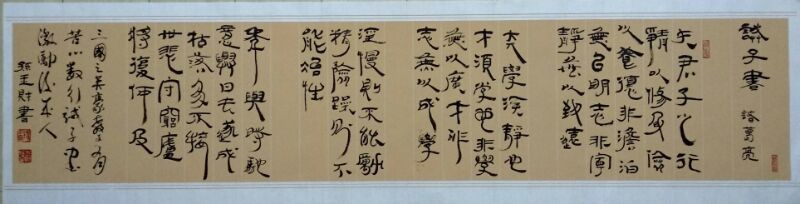 誡子書 諸葛亮
夫君子之行
靜以修身儉
以養德非澹泊
無以明志非寧
靜無以致遠
夫學須靜也
才須學也非學
無以廣才非
志無以成學
淫慢則不能勵
精險躁則不
能冶性
年與時馳
意與日去遂成
枯落多不接
世悲守窮廬
將復何及
三國之英豪
苦心 誡子書
激勵後來人
玉財書